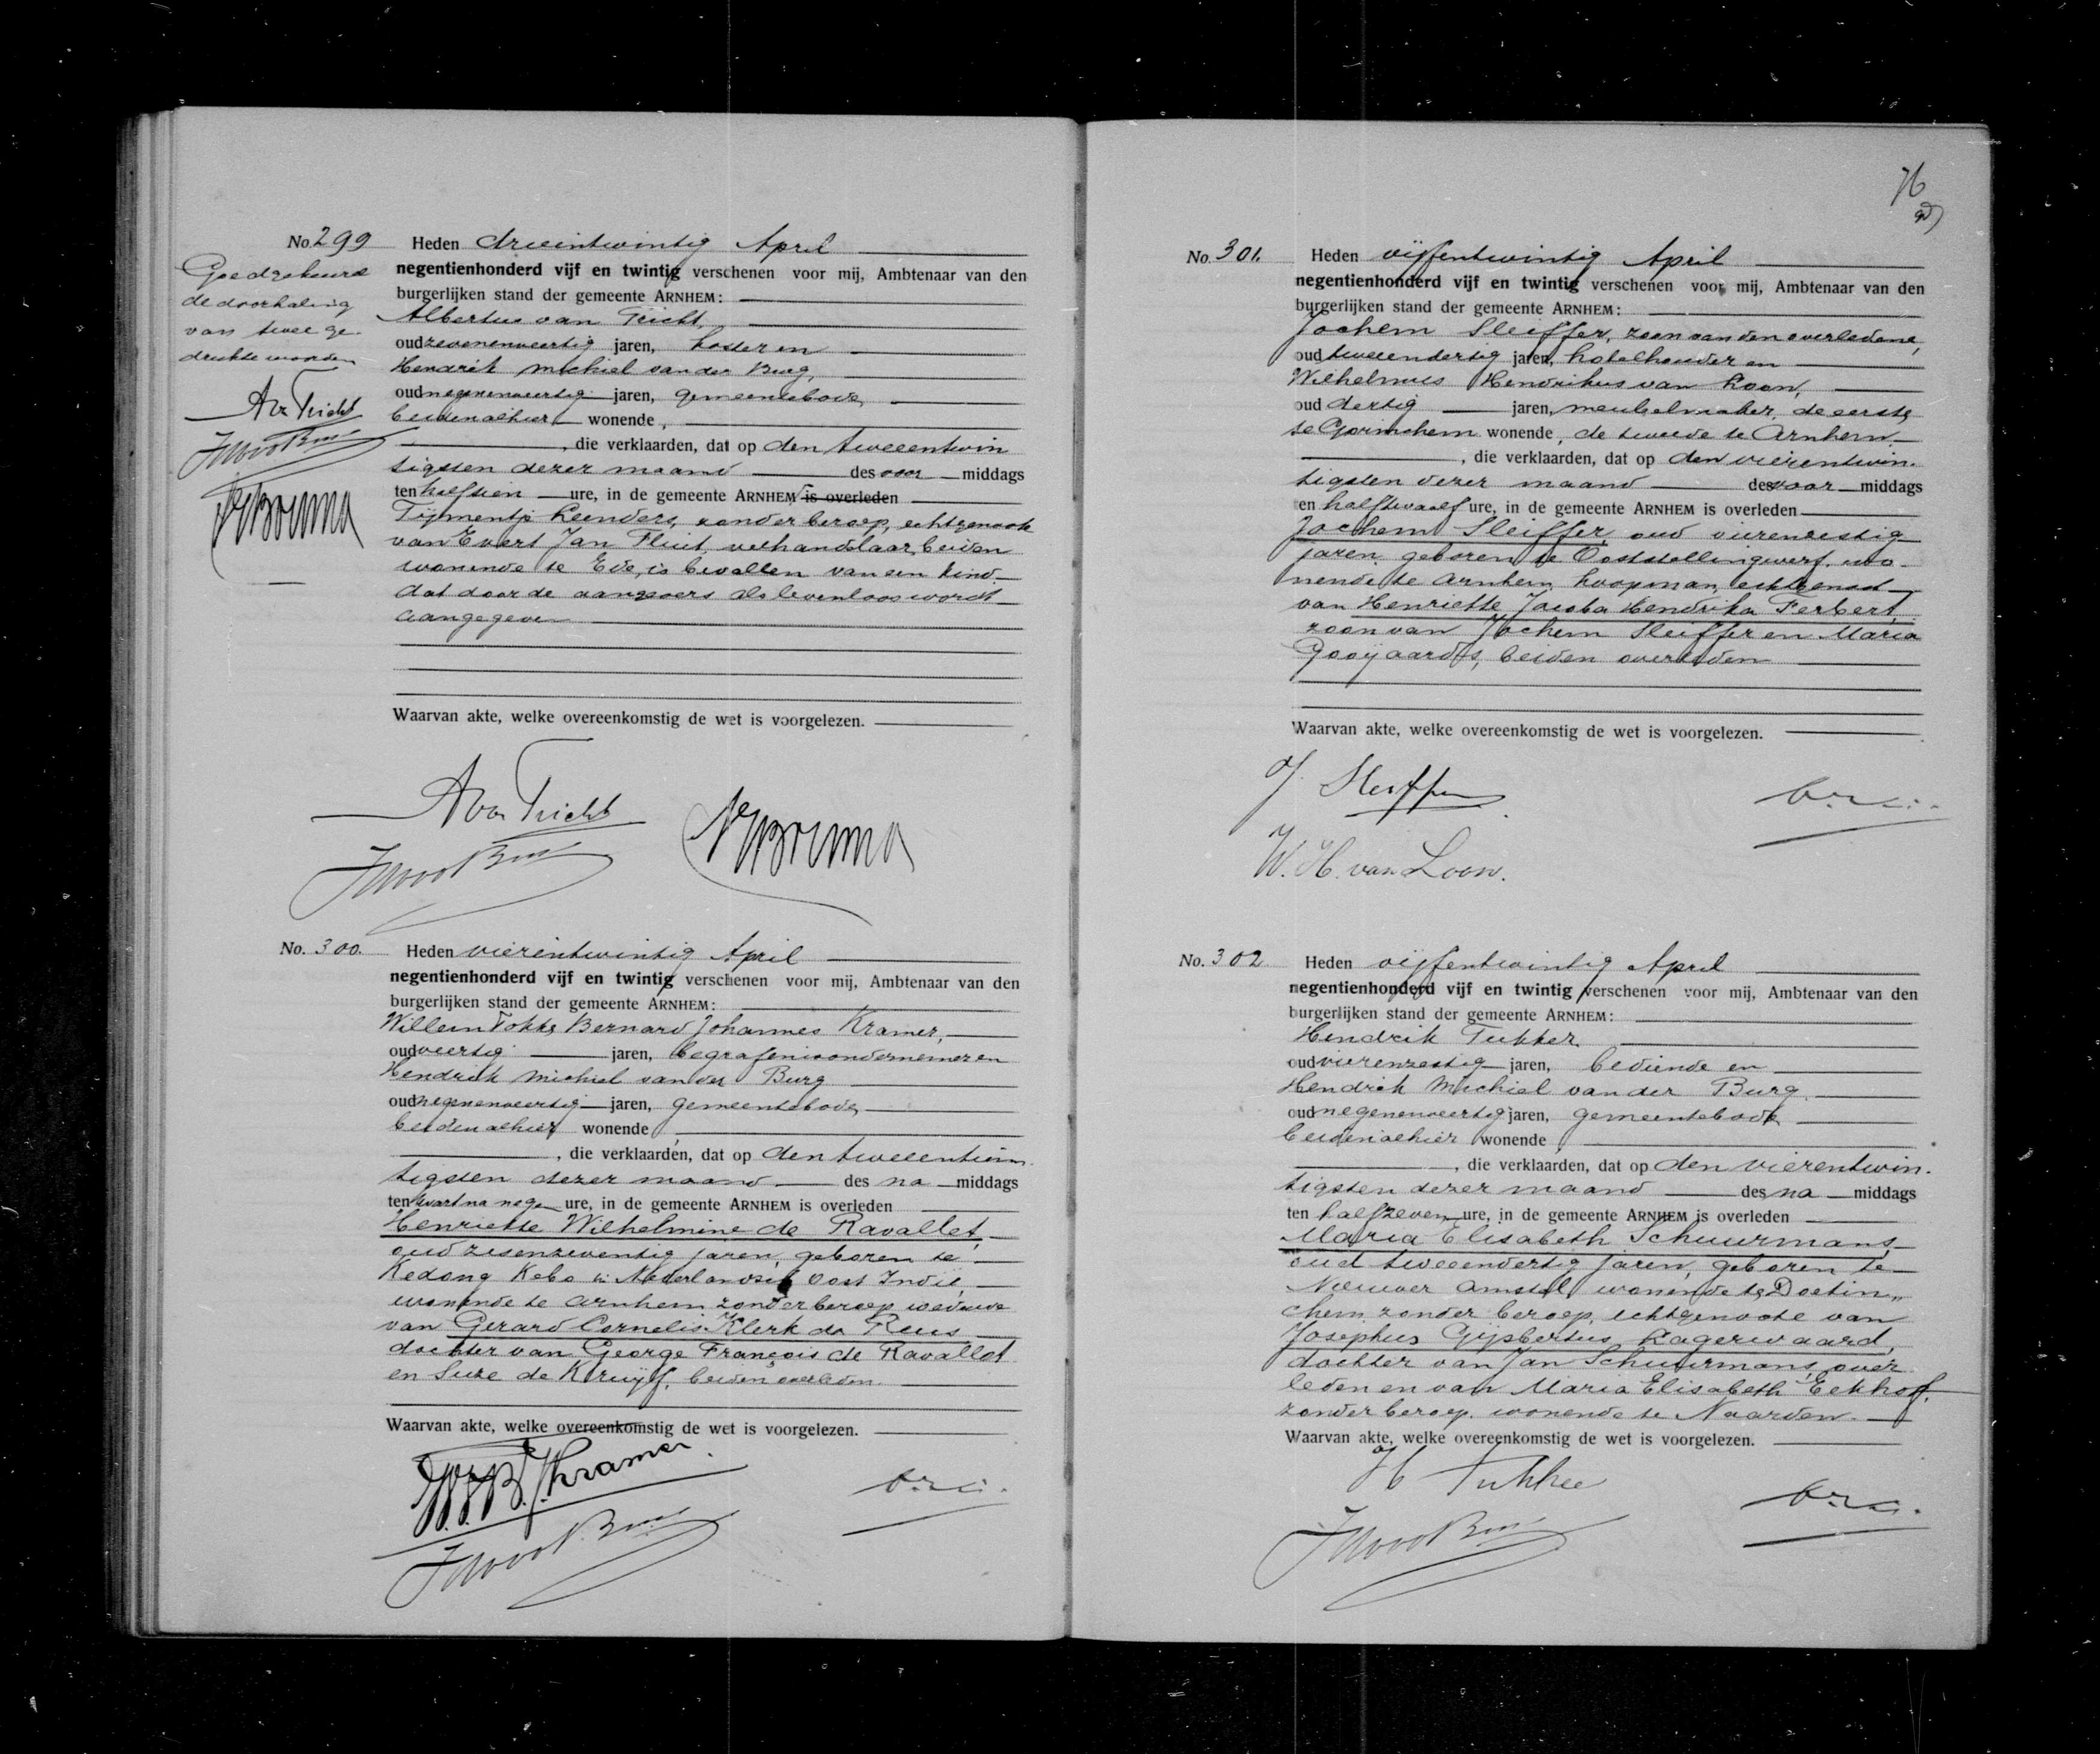 No. 299
Goedgekeurd
de doorhaling
van twee ge-
drukte woorden
AvTricht
Heden drieentwintig April
negentienhonderd vijf en twintig verschenen voor mij, Ambtenaar van den
burgerlijken stand der gemeente ARNHEM:
Albertus van Tricht,
oud zevenenveertig jaren, koster en
Hendrik Michiel van der Burg,
oud negenenveertig jaren, gemeentebode,
beiden alhier wonende,
, die verklaarden, dat op den tweeentwin
tigsten dezer maand des voor middags
ten halftien ure, in de gemeente ARNHEM is overleden
Tijmentje Leenders, zonder beroep, echtgenoote
van Evert Jan Fluit, veehandelaar, beiden
wonende te Ede, is bevallen van een kind
dat door de aangevers als levenloos wordt
aangegeven
Waarvan akte, welke overeenkomstig de wet is voorgelezen.
AvanTricht
No. 300.
Heden vierentwintig April
negentienhonderd vijf en twintig verschenen voor mij, Ambtenaar van den
burgerlijken stand der gemeente ARNHEM:
Willem Fokke Bernard Johannes Kramer,
oud veertig jaren, begrafenisondernemer en
Hendrik Michiel van der Burg
oud negenenveertig jaren, gemeentebode,
beiden alhier wonende,
, die verklaarden, dat op den tweeentwin
tigsten dezer maand des na middags
ten kwart na negen ure, in de gemeente ARNHEM is overleden
Henriette Wilhelmine de Ravallet,
oud zesenzeventig jaren, geboren te
Kedong Kebo in Nederlandsch Oost Indië,
wonende te Arnhem, zonder beroep, weduwe
van Gerard Cornelis Klerk de Reus
dochter van George François de Ravallet
en Suze de Kruijf, beiden overleden.
Waarvan akte, welke overeenkomstig de wet is voorgelezen.
W.F.B.J. Kramer.
76
No. 301.
Heden vijfentwintig April
negentienhonderd vijf en twintig verschenen voor mij, Ambtenaar van den
burgerlijken stand der gemeente ARNHEM:
Jochem Sleiffer, zoon van den overledene,
oud tweeendertig jaren, hotelhouder en
Wilhelmus Hendrikus van Loon,
oud dertig jaren, meubelmaker, de eerste
te Gorinchem wonende, de tweede te Arnhem
, die verklaarden, dat op den vierentwin-
tigsten dezer maand des voor middags
ten halftwaalf ure, in de gemeente ARNHEM is overleden
Jochem Sleiffer, oud vierenzestig
jaren, geboren te Ooststellingwerf, wo-
nende te Arnhem, koopman, echtgenoot
van Henriette Jacoba Hendrika Ferbert,
zoon van Jochem Sleiffer en Maria
Gooijaards, beiden overleden
Waarvan akte, welke overeenkomstig de wet is voorgelezen.
J. Sleiffer
W. H. van Loon.
No. 302
Heden vijfentwintig April
negentienhonderd vijf en twintig verschenen voor mij, Ambtenaar van den
burgerlijken stand der gemeente ARNHEM:
Hendrik Tukker
oud vierenzestig jaren, bediende en
Hendrik Michiel van der Burg,
oud negenenveertig jaren, gemeentebode
beiden alhier wonende
, die verklaarden, dat op den vierentwin-
tigsten dezer maand des na middags
ten halfzeven ure, in de gemeente ARNHEM is overleden
Maria Elisabeth Schuurmans,
oud tweeendertig jaren, geboren te
Nieuwer Amstel, wonende te Doetin„
chem, zonder beroep, echtgenoote van
Josephus Gijsbertus Ragerwaard,
dochter van Jan Schuurmans, over
leden en van Maria Elisabeth Eekhoff,
zonder beroep, wonende te Naarden.
Waarvan akte, welke overeenkomstig de wet is voorgelezen.
H Tukker